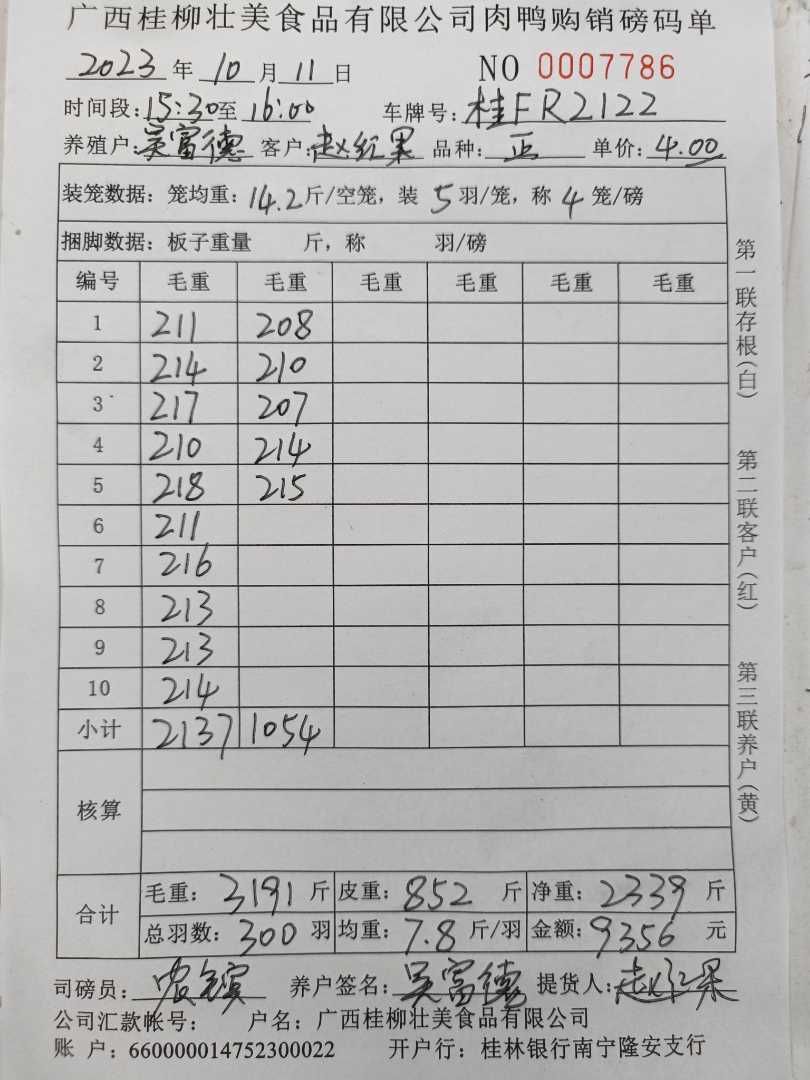 广西桂柳壮美食品有限公司肉鸭购销磅码单
2023 年 10 月 11 日 NO 0007786
时间段: 15:30 至 16:00 车牌号: 桂FR2122
养殖户: 吴富德 客户: 赵红果 品种: 正 单价: 4.00
装笼数据: 笼均重: 14.2 斤/空笼, 装 5 羽/笼, 称 4 笼/磅
捆脚数据: 板子重量 斤, 称 羽/磅
编号 毛重 毛重 毛重 毛重 毛重 毛重
1 211 208
2 214 210
3 217 207
4 210 214
5 218 215
6 211
7 216
8 213
9 213
10 214
小计 2137 1054
核算
合计
毛重: 3191 斤 皮重: 852 斤 净重: 2339 斤
总羽数: 300 羽 均重: 7.8 斤/羽 金额: 9356 元
司磅员: 养户签名: 吴富德 提货人: 赵红果
公司汇款帐号: 户名: 广西桂柳壮美食品有限公司
账 户: 660000014752300022 开户行: 桂林银行南宁隆安支行
第一联存根(白)
第二联客户(红)
第三联养户(黄)